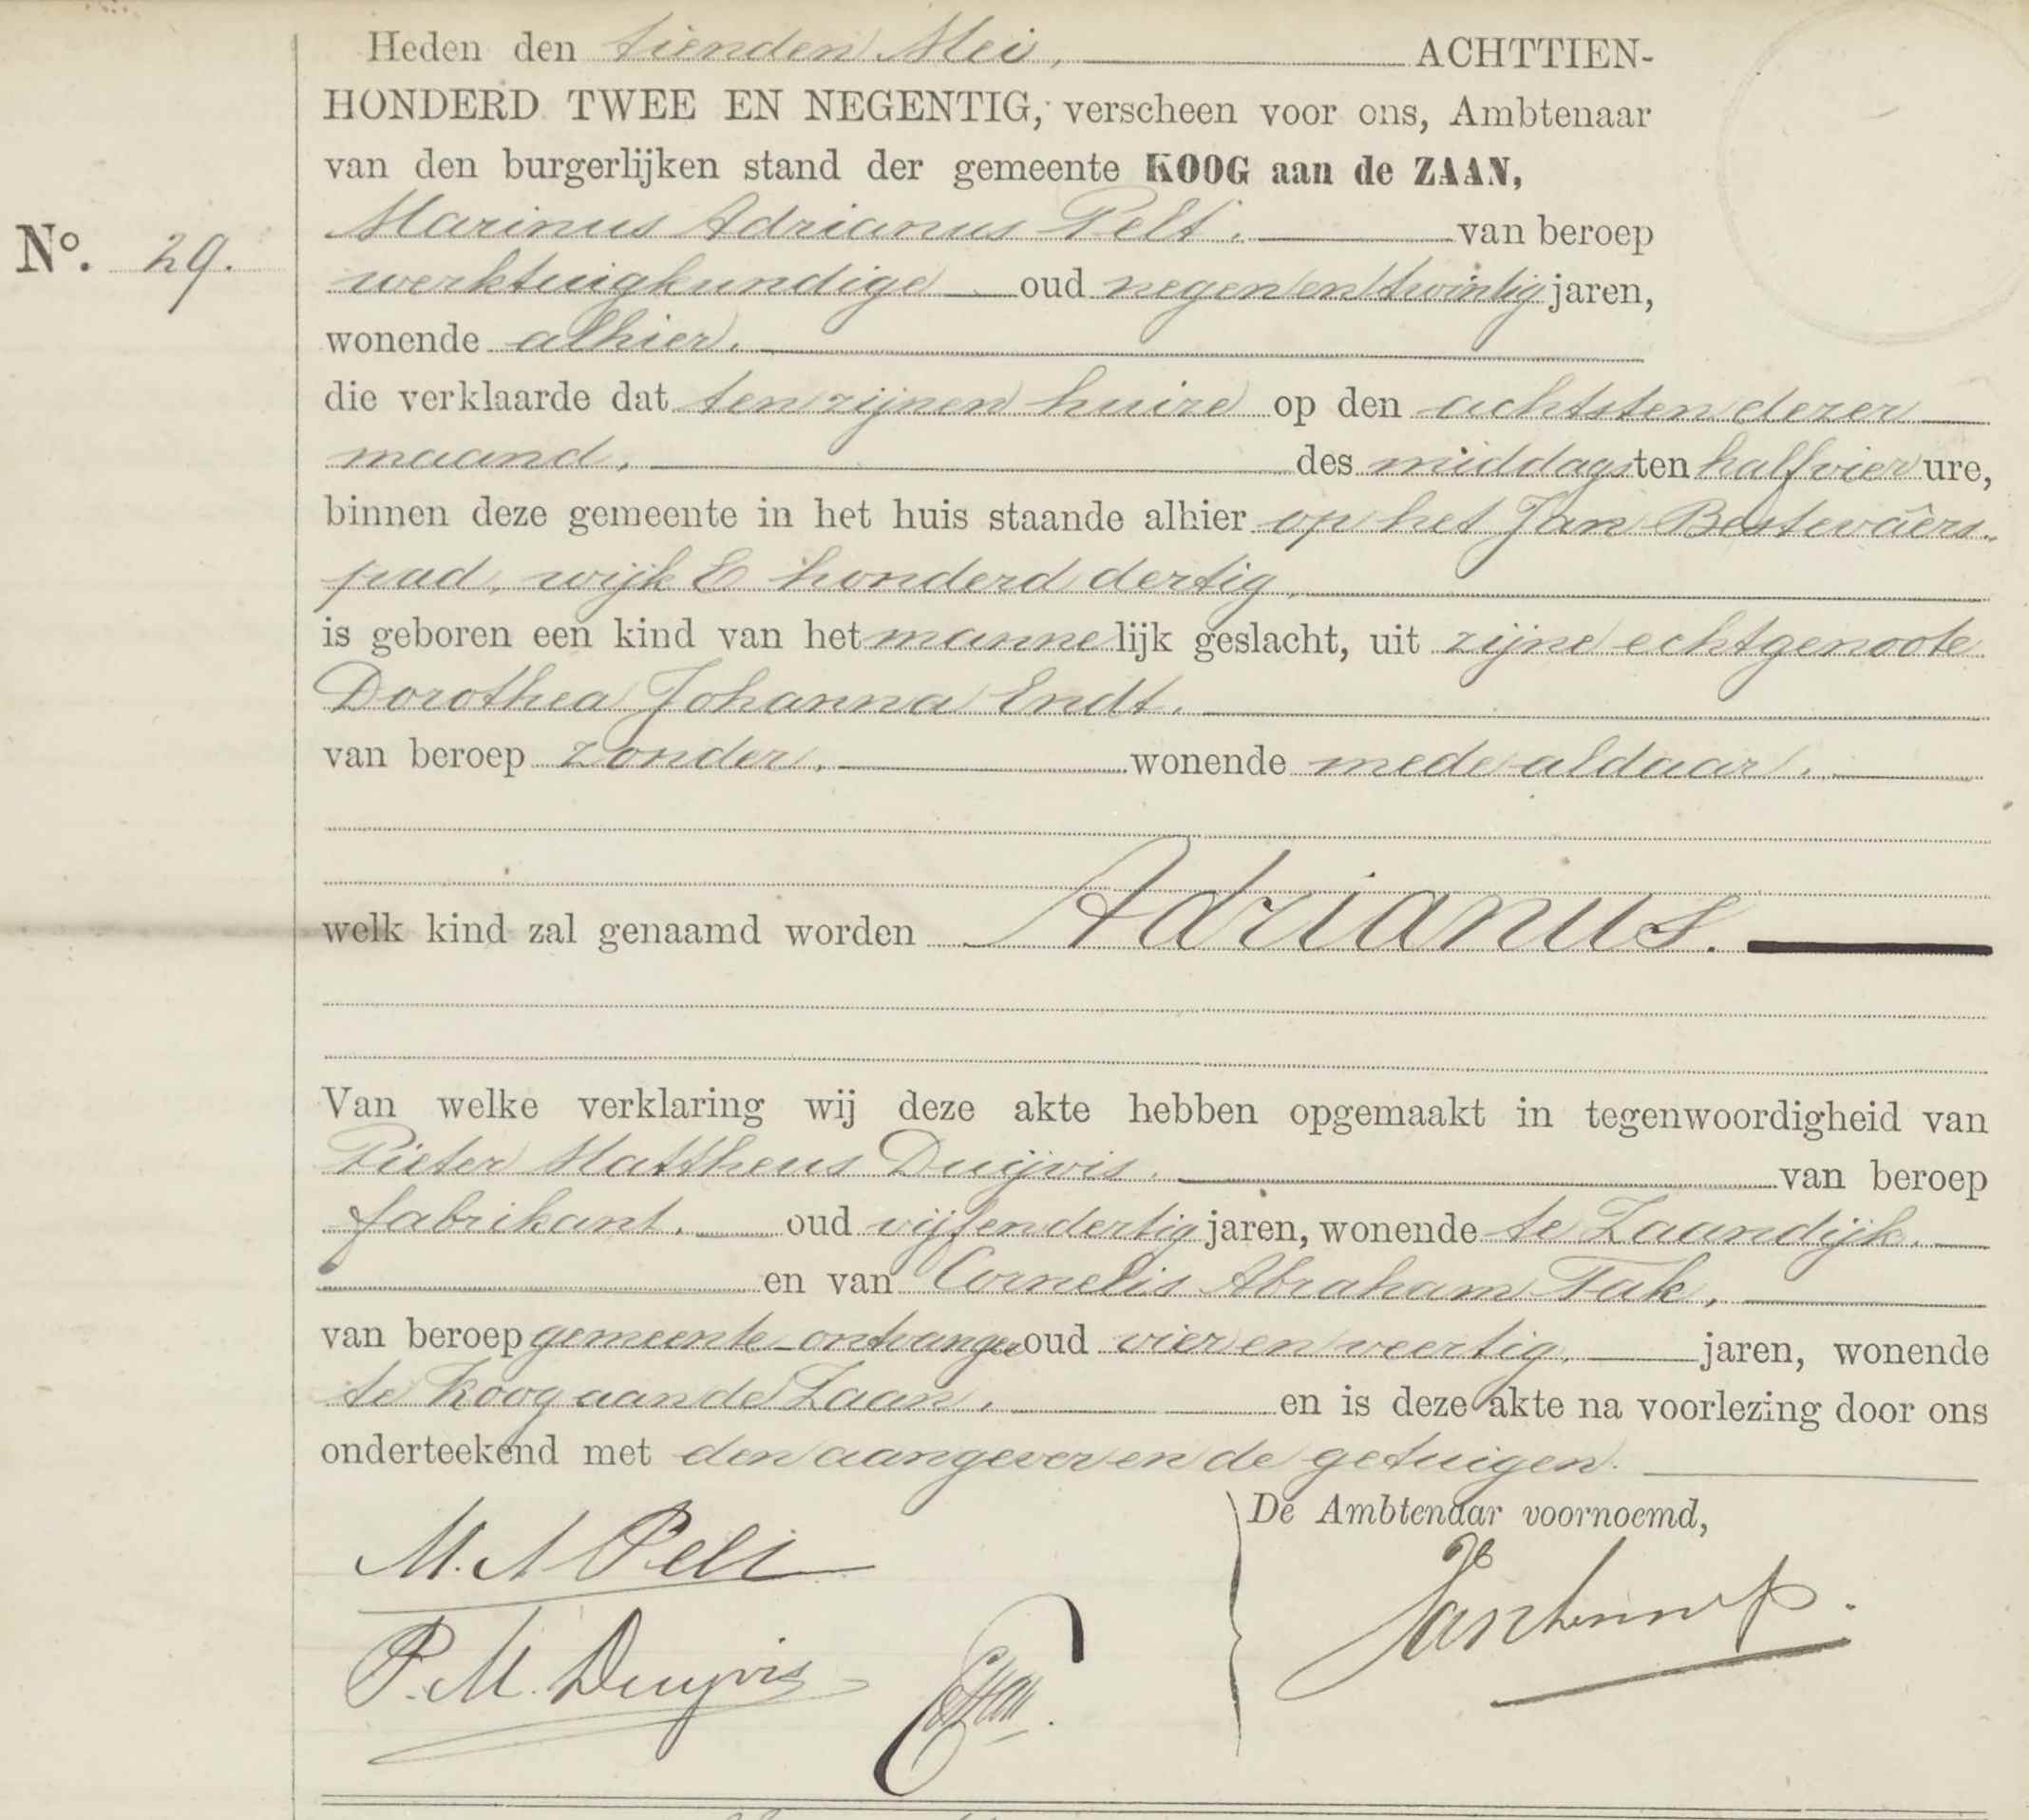 Heden den tienden Mei, ACHTTIEN-
HONDERD TWEE EN NEGENTIG, verscheen voor ons, Ambtenaar
van den burgerlijken stand der gemeente KOOG aan de ZAAN,
Marinus Adrianus Pelt. van beroep
No. 29.
werktuigkundige oud negen en twintig jaren,
wonende alhier.
die verklaarde dat ten zijnen huize op den achtsten dezer
maand, des middags ten half vier ure,
binnen deze gemeente in het huis staande alhier op het Jan Bestevâers-
pad, wijk E honderd dertig,
is geboren een kind van het mannelijk geslacht, uit zijne echtgenoote
Dorothea Johanna Endt.
van beroep zonder, wonende mede aldaar.
welk kind zal genaamd worden Adrianus.
Van welke verklaring wij deze akte hebben opgemaakt in tegenwoordigheid van
Pieter Mattheus Duijvis. van beroep
fabrikant. oud vijf en dertig jaren, wonende te Zaandijk.
en van Cornelis Abraham Tak,
van beroep gemeente-ontvanger oud vier en veertig. jaren, wonende
te Koog aan de Zaan. en is deze akte na voorlezing door ons
onderteekend met den aangever en de getuigen.
De Ambtenaar voornoemd,
M. A Pelt
P. M. Duyvis